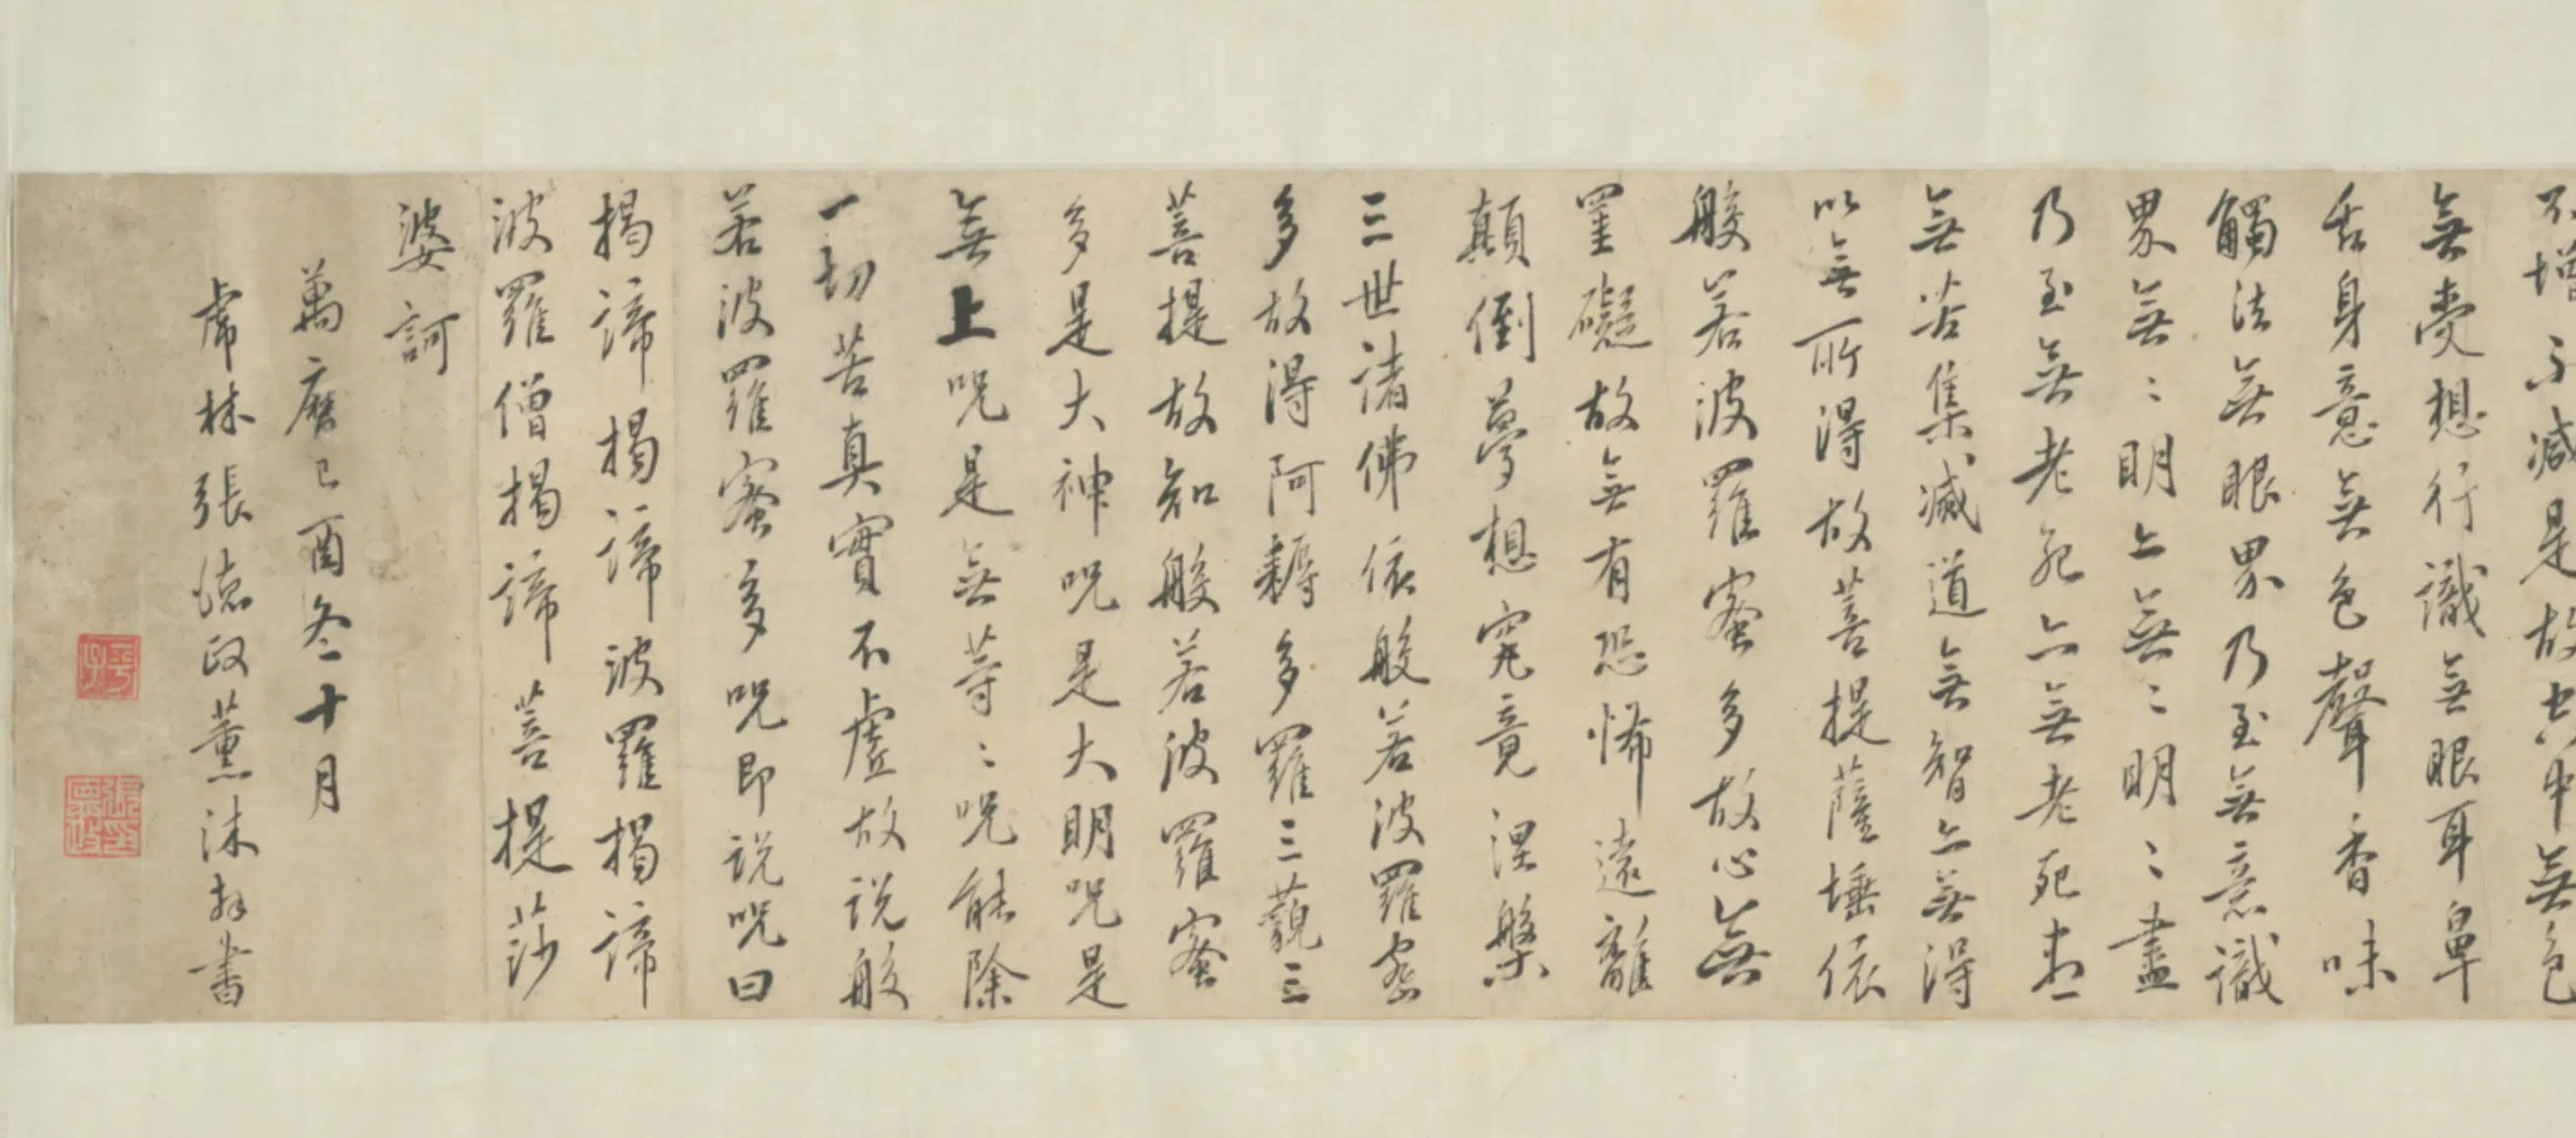 不增不減是故空中無色
無受想行識無眼耳鼻
舌身意無色聲香味
觸法無眼界乃至無意識
界無〻明亦無〻明〻盡
乃至無老死亦無老死盡
無苦集滅道無智亦無得
以無所得故菩提薩埵依
般若波羅蜜多故心無
罣礙故無有恐怖遠離
顛倒夢想究竟涅槃
三世諸佛依般若波羅蜜
多故得阿耨多羅三藐三
菩提故知般若波羅蜜
多是大神呪是大明呪是
無上呪是無等〻呪能除
一切苦真實不虛故說般
若波羅蜜多呪即說呪曰
揭諦揭諦波羅揭諦
波羅僧揭諦菩提莎
婆訶
萬曆己酉冬十月
虎林張德政薰沐拜書